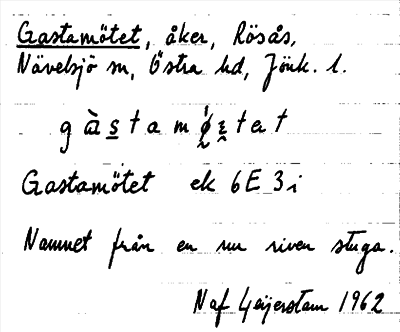 Gastamötet, åker, Rösås,
Nävelsjö sn, Östra hd, Jönk. l.
g à s t a m ǿ̰ ε̰ t e t
Gastamötet ek 6E 3i
Namnet från en nu riven stuga.
Naf Geijerstam 1962